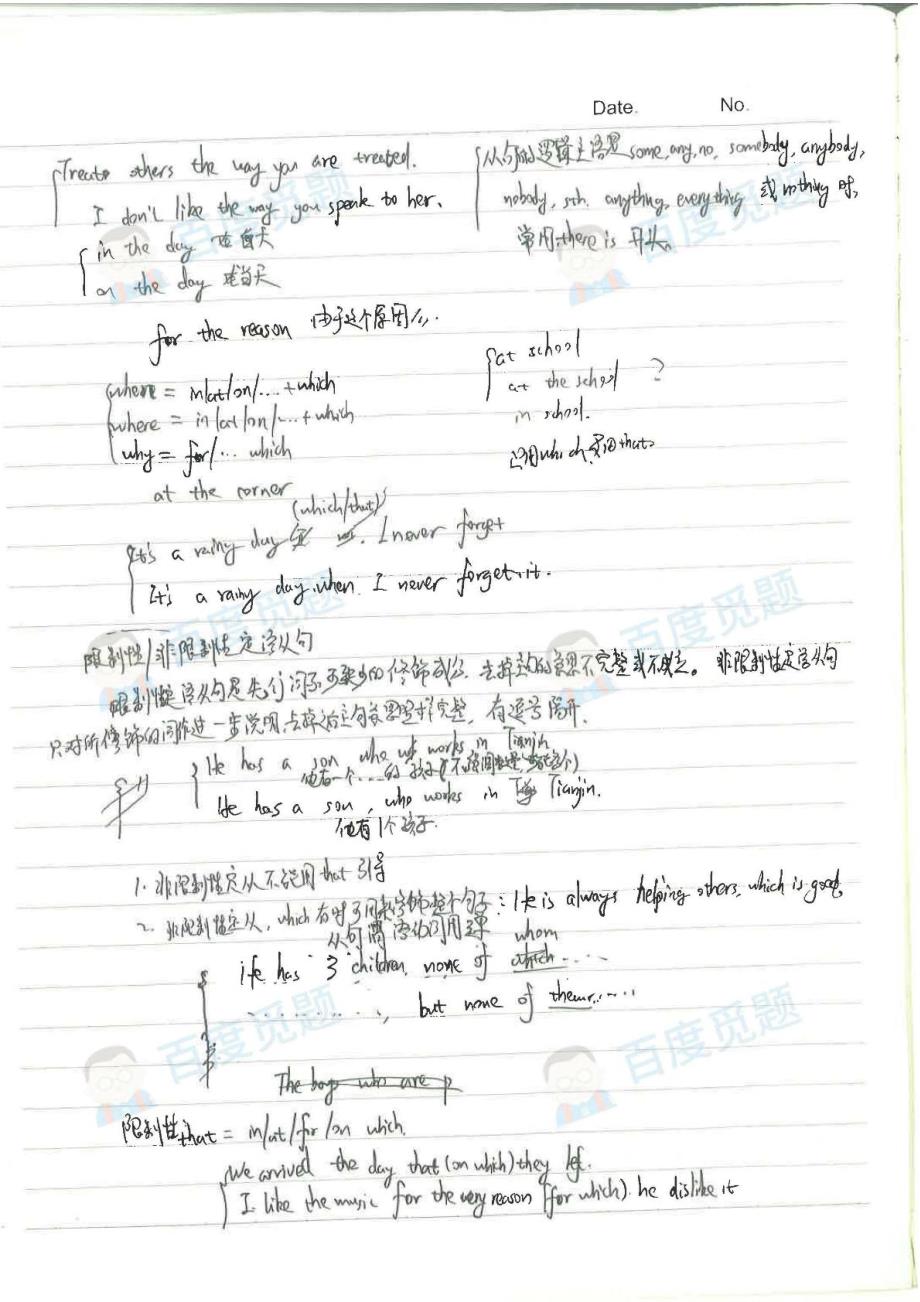 Date. No.
Treate others the way you are treated.
I don't like the way you speak to her.
in the day 在白天
on the day 在当天
从句的逻辑主语是some, any, no, somebody, anybody,
nobody, sth. anything, everything 或 nothing 时,
常用there is 开头。
for the reason 由于这个原因
where = in/at/on/... + which
where = in/at/on/... + which
why = for/... which
at the corner
at school
at the school ?
in school.
which 用that。
(which/that)
It's a rainy day . I never forget
It's a rainy day when I never forget it.
限制性/非限制性定语从句
限制性定语从句是先行词不可缺少的修饰成分, 去掉主句的意思不完整或不 。非限制性定语从句
只对所修饰的词作进一步说明,去掉后主句意思 完整,有逗号隔开.
He has a son who works in Tianjin
他有一个...的孩子
He has a son, who works in Tianjin.
他有1个孩子.
1. 非限制性定从不能用that 引导
2. 非限制性定从, which 有时可用来修饰整个句子: He is always helping others, which is good.
从句 谓语动词用单
whom
He has 3 children, none of which .....
.........., but none of them......
The boys who are p
限制性that = in/at/for/on which.
We arrived the day that (on which) they left.
I like the music for the very reason (for which) he dislike it
百度觅题
百度觅题
百度觅题
百度觅题
百度觅题
百度觅题